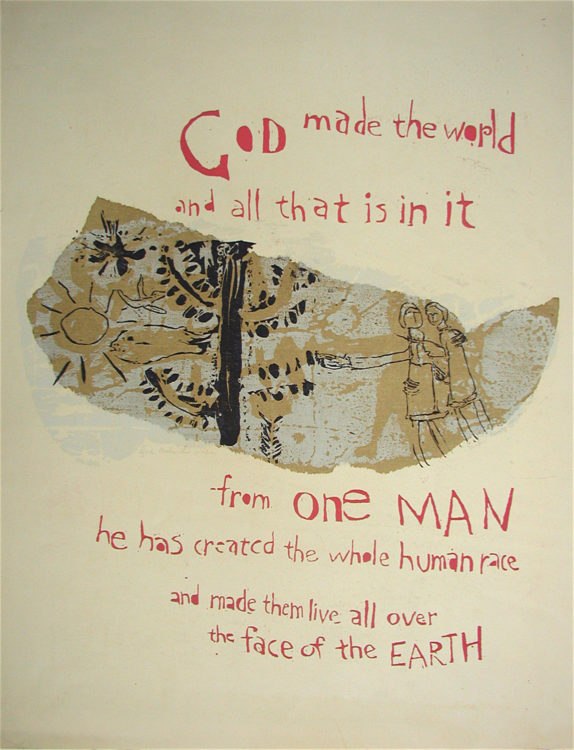 GOD made the world
and all that is in it
from one MAN
he has created the whole human race
and made them live all over
the face of the EARTH